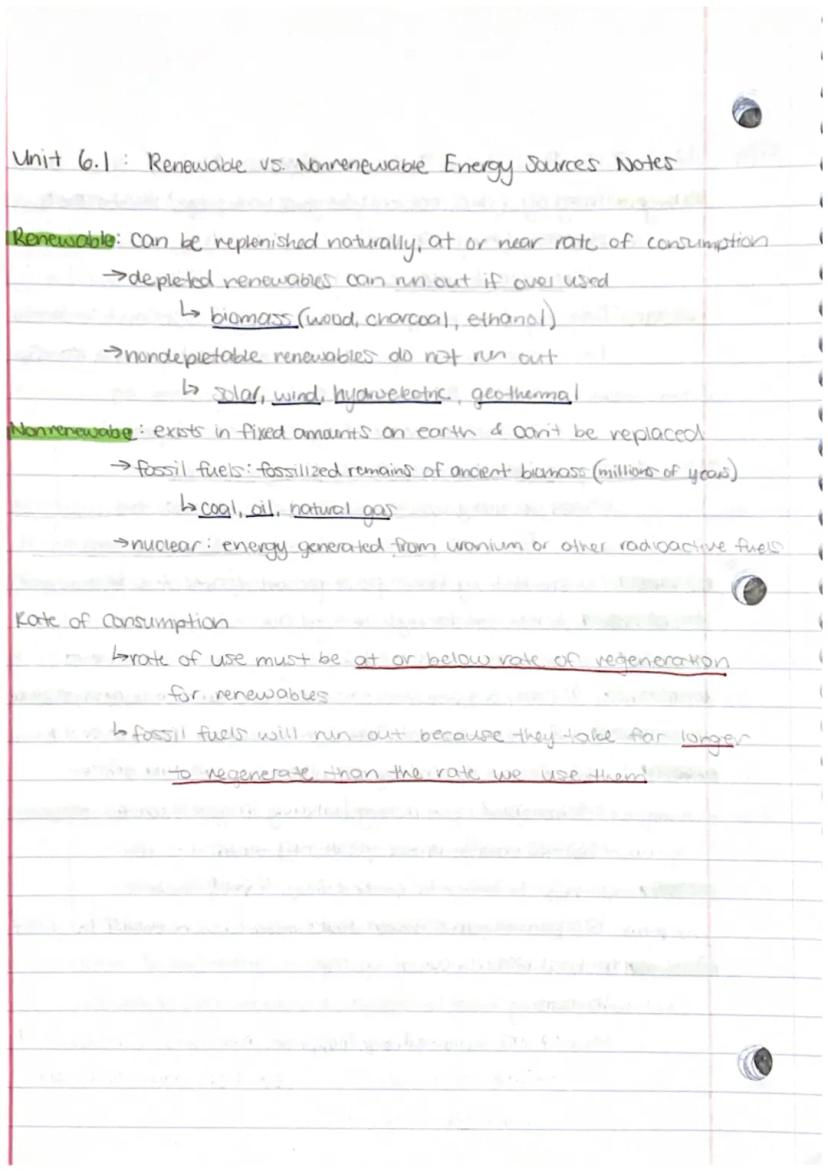 Unit 6.1: Renewable vs. Nonrenewable Energy Sources Notes
Renewable: can be replenished naturally, at or near rate of consumption
→depleted renewables can run out if over used
↳ biomass (wood, charcoal, ethanol)
→nondepletable renewables do not run out
↳ solar, wind, hydroelectric, geothermal
Nonrenewable: exists in fixed amounts on earth & can't be replaced
→fossil fuels: fossilized remains of ancient biomass (millions of years)
↳ coal, oil, natural gas
→nuclear: energy generated from uranium or other radioactive fuels
Rate of Consumption
↳rate of use must be at or below rate of regeneration
for renewables
↳fossil fuels will run out because they take far longer
to regenerate than the rate we use them